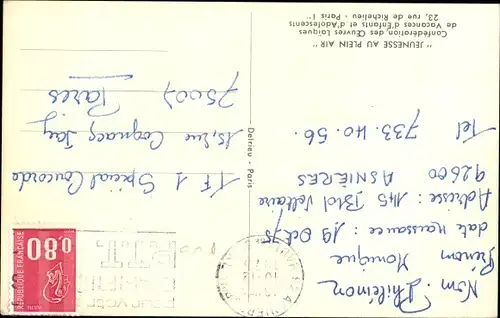 Nom. Philéinon
Prénom Monique
date naissance : 19 Oct 75
Adresse : 145 Blvd Voltaire
92600 ASNIÈRES
Tel 733.40.56.
T F 1 Spécial Concorde
15, rue Cognacq Jay
75007 Paris
0,80
RÉPUBLIQUE FRANÇAISE
Delrieu - Paris
" JEUNESSE AU PLEIN AIR "
Confédération des Œuvres Laïques
de Vacances d'Enfants et d'Adolescents
23, rue de Richelieu - Paris 1er